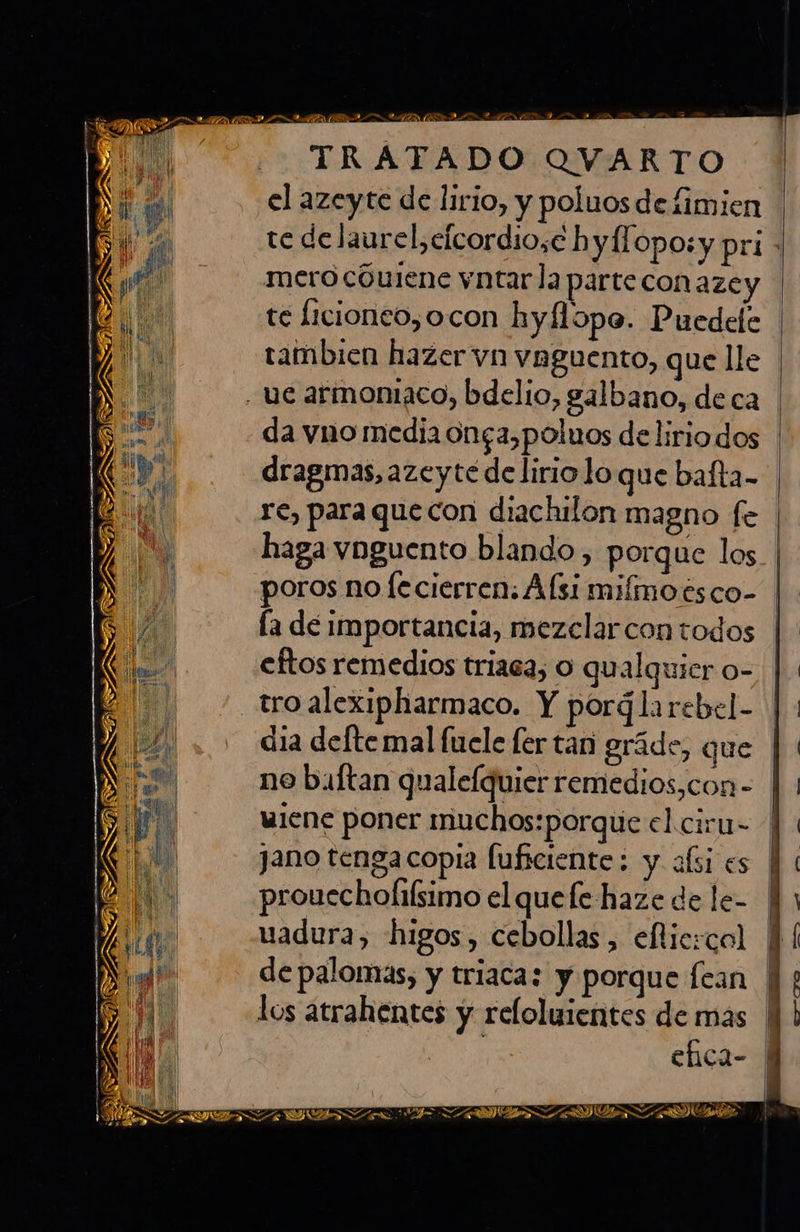 TRATADO QVARTO
el azeyte de lirio, y poluos de ſimien
te de laurel, eſcordio, è hyſſopo: y pri
mero cõuiene vntar la parte con azey
te ſicioneo, o con hyſſopo. Puedeſe
tambien hazer vn vnguento, que lle
ue armoniaco, bdelio, galbano, de ca
da vno media onça, poluos de lirio dos
dragmas, azeyte de lirio lo que baſta-
re, para que con diachilon magno ſe
haga vnguento blando, porque los
poros no ſe cierren: Aſsi miſmo es co-
ſa de importancia, mezclar con todos
eſtos remedios triaca, o qualquier o-
tro alexipharmaco. Y porq̃ la rebel-
dia deſte mal ſuele ſer tan grãde, que
no baſtan qualeſquier remedios, con-
uiene poner muchos: porque el ciru-
jano tenga copia ſuficiente: y aſsi es
prouechoſiſsimo el que ſe haze de le-
uadura, higos, cebollas, eſtiercol
de palomas, y triaca: y porque ſean
los atrahentes y reſoluientes de mas
efica-